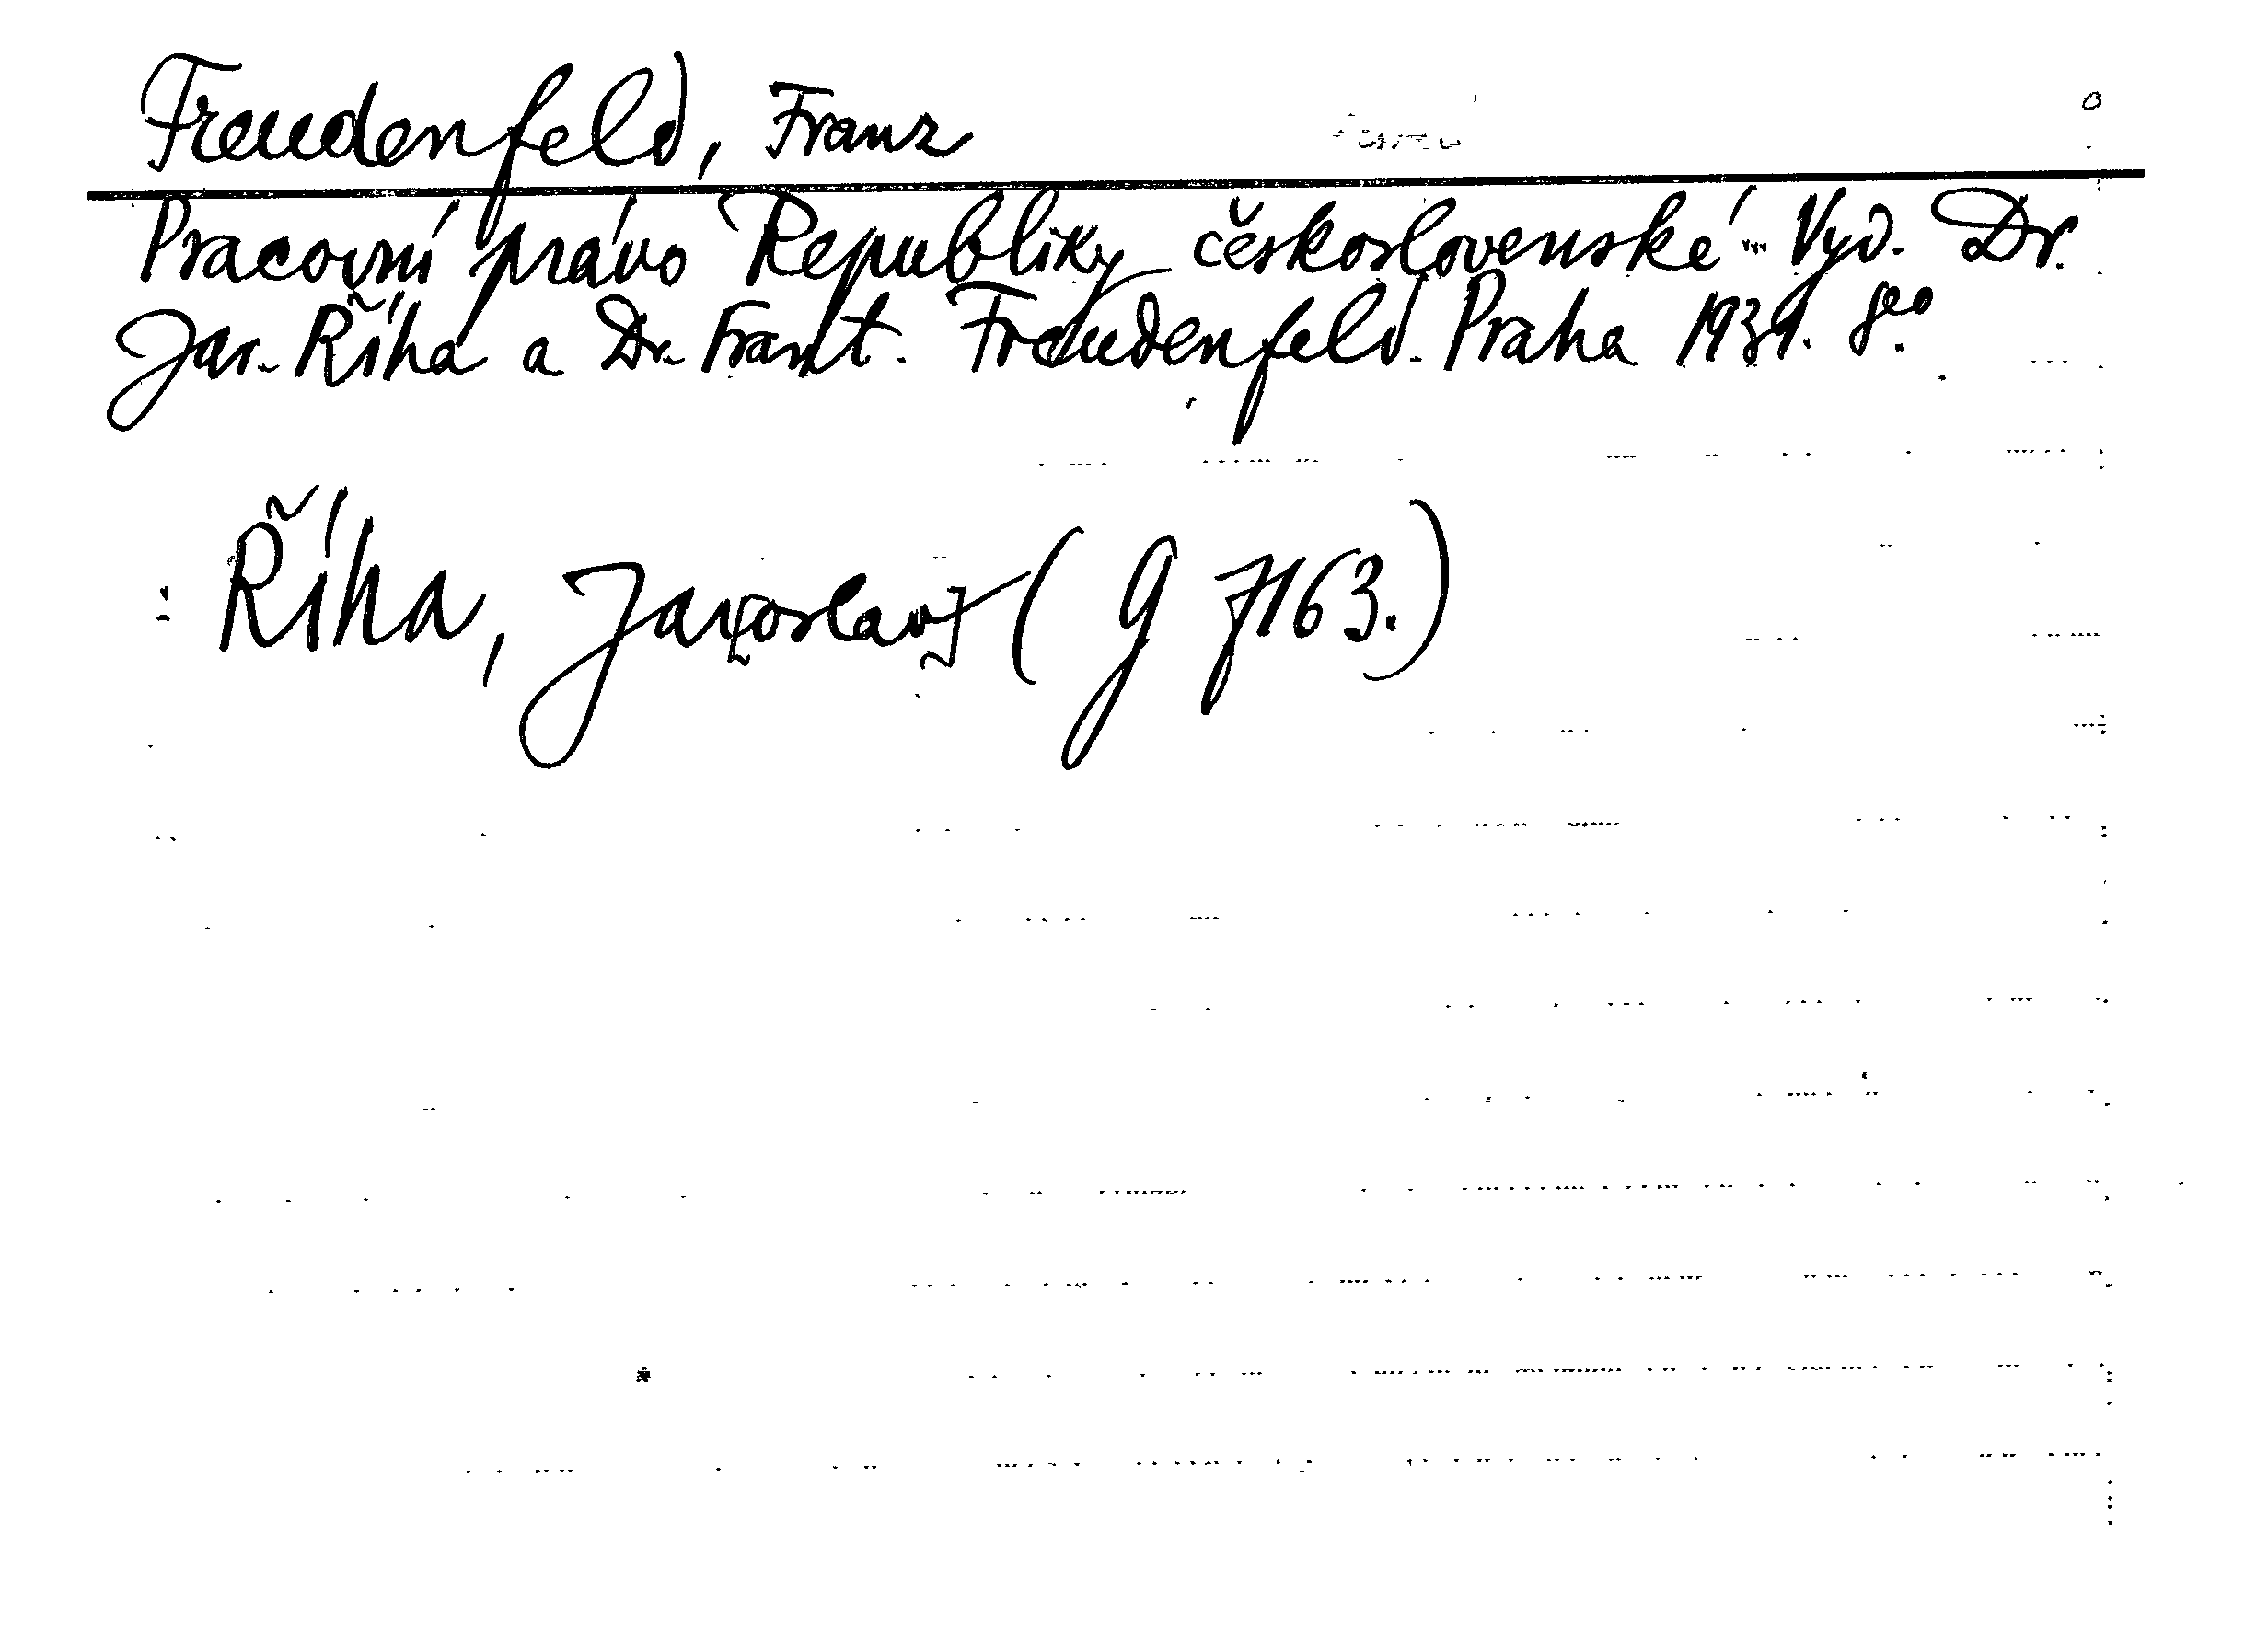 Freudenfeld, Franz
Pracovní právo Republiky československé. Vyd. Dr.
Jar. Říha a Dr. Frant. Freudenfeld. Praha 1939. 8°.
: Říha, Jar[oslav] (g 7163.)